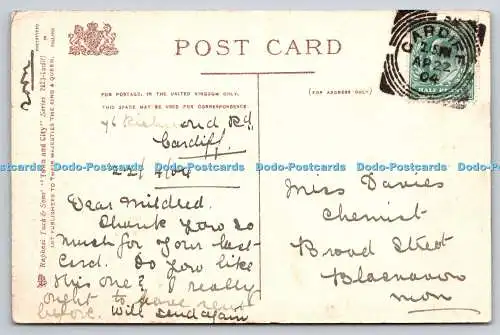 POST CARD
FOR POSTAGE, IN THE UNITED KINGDOM ONLY,
THIS SPACE MAY BE USED FOR CORRESPONDENCE
(FOR ADDRESS ONLY)
Raphael Tuck & Sons' "Town and City" Series
ART PUBLISHERS TO THEIR MAJESTIES THE KING & QUEEN.
CARDIFF
AP 22
04
HALF PENNY
Rd
Cardiff.
22/4/04
Dear Mildred.
Thank you so
much for your last
card. Do you like
this one? I really
ought to have sent
before. Will send again
Miss Davies
Chemist
Broad Street
Blaenavon
Mon
Dodo-Postcards Dodo-Postcards Dodo-Postcards Dodo-Postcards Dodo-Postcards